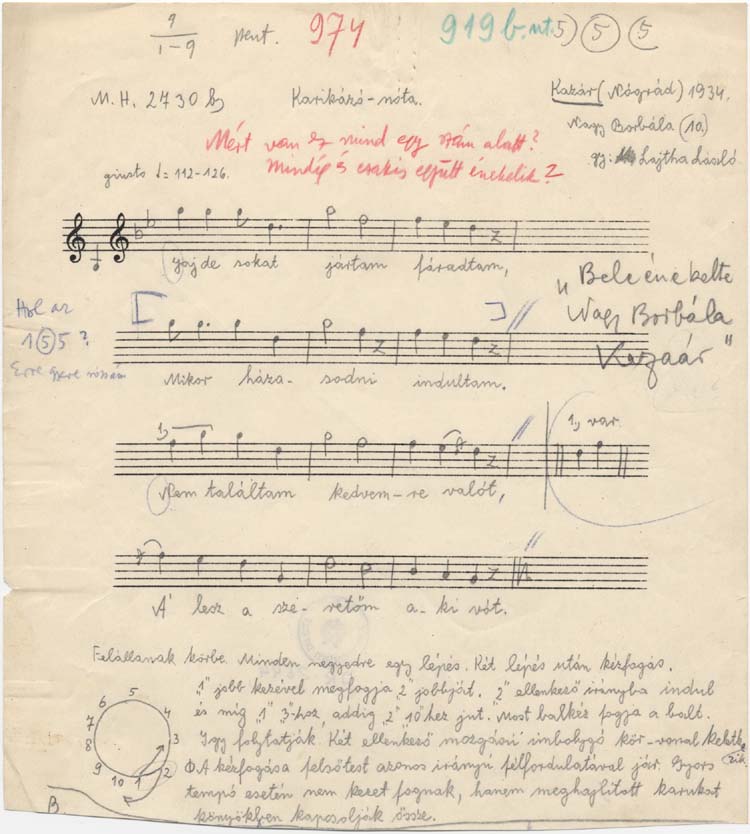 9
1-9 pent. 974 919 b. nt. 5) (5) (5
M.H. 2730 b) Karikázó-nóta. Kazár (Nógrád) 1934.
Nagy Borbála (10)
gy: Lajtha László
Mért van ez mind egy szám alatt?
Mindég és csakis együtt éneklik?
giusto ♩=112-126.
Jajde sokat jártam fáradtam,
Hol az
1 (5) 5?
Erre gyere rózsám
"Beleénekelte
Nagy Borbála
Kazár"
Mikor háza-sodni indultam.
1, 1, var.
Nem találtam kedvem-re valót,
Á lesz a sze-retőm a-ki vót.
Felállanak körbe. Minden negyedre egy lépés. Két lépés után kézfogás.
"1" jobb kezével megfogja "2" jobbját. "2" ellenkező irányba indul
és míg "1" "3"-hoz, addig "2" "10"hez jut. Most balkéz fogja a balt.
Így folytatják. Két ellenkező mozgású imbolygó kör-vonal keletke
zik.
A kézfogása felsőtest azonos irányú félfordulatával jár. Gyors
tempó esetén nem kezet fognak, hanem meghajlított karukat
könyökben kapcsolják össze.
5
6 4
7
8 3
9 2
10 1
B